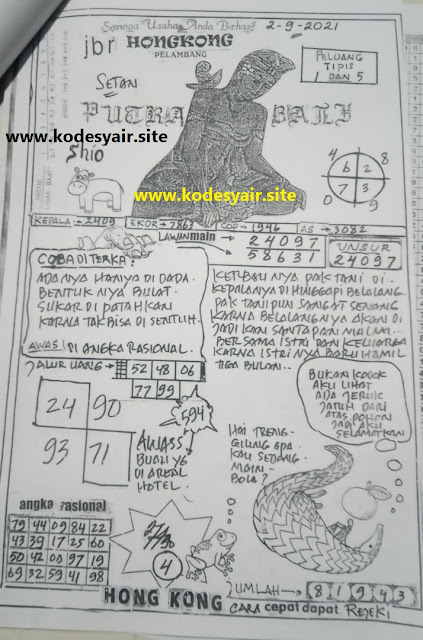 Semoga Usaha Anda Berhasil
2-9-2021
jbr HONGKONG
PELAMBANG
PELUANG
TIPIS
1 DAN 5
SETAN
PUTRA BALI
www.kodesyair.site
Shio
www.kodesyair.site
4 8
6 2
7 3
0 9
KEPALA → 2409 EKOR → 7863 COP → 1946 AS → 3082
LAWAN main 24097
58631
UNSUR
24097
COBA DI TERKA?
ADA NYA HANYA DI DADA.
BENTUK NYA BULAT.
SUKAR DI PATAHKAN
KARNA TAK BISA DI SENTUH.
AWAS! DI ANGKA RASIONAL.
KETIBAN NYA PAK TANI DI
KEPALANYA DI HINGGAPI BELALANG
PAK TANI PUN SANGAT SENANG
KARNA BELALANGNYA AKAN DI
JADIKAN SANTAPAN MALAM...
BERSAMA ISTRI DAN KELUARGA
KARNA ISTRI NYA BARU HAMIL
TIGA BULAN...
JALUR UANG → 52 48 06
77 99
594
24 90
93 71
AWASS
BUAH YG
DI AREAL
HOTEL.
BUKAN KODOK
AKU LIHAT
ADA JERUK
JATUH DARI
ATAS POHON
JADI AKU
SELAMATKAN
HAI TRENG-
GILING APA
KAU SEDANG
MAIN-
BOLA?
angka rasional
79 44 09 84 22
43 39 17 25 60
50 42 00 97 19
69 32 59 41 98
4
JUMLAH → 8 1 9 4 3
HONG KONG CARA cepat dapat REJEKI